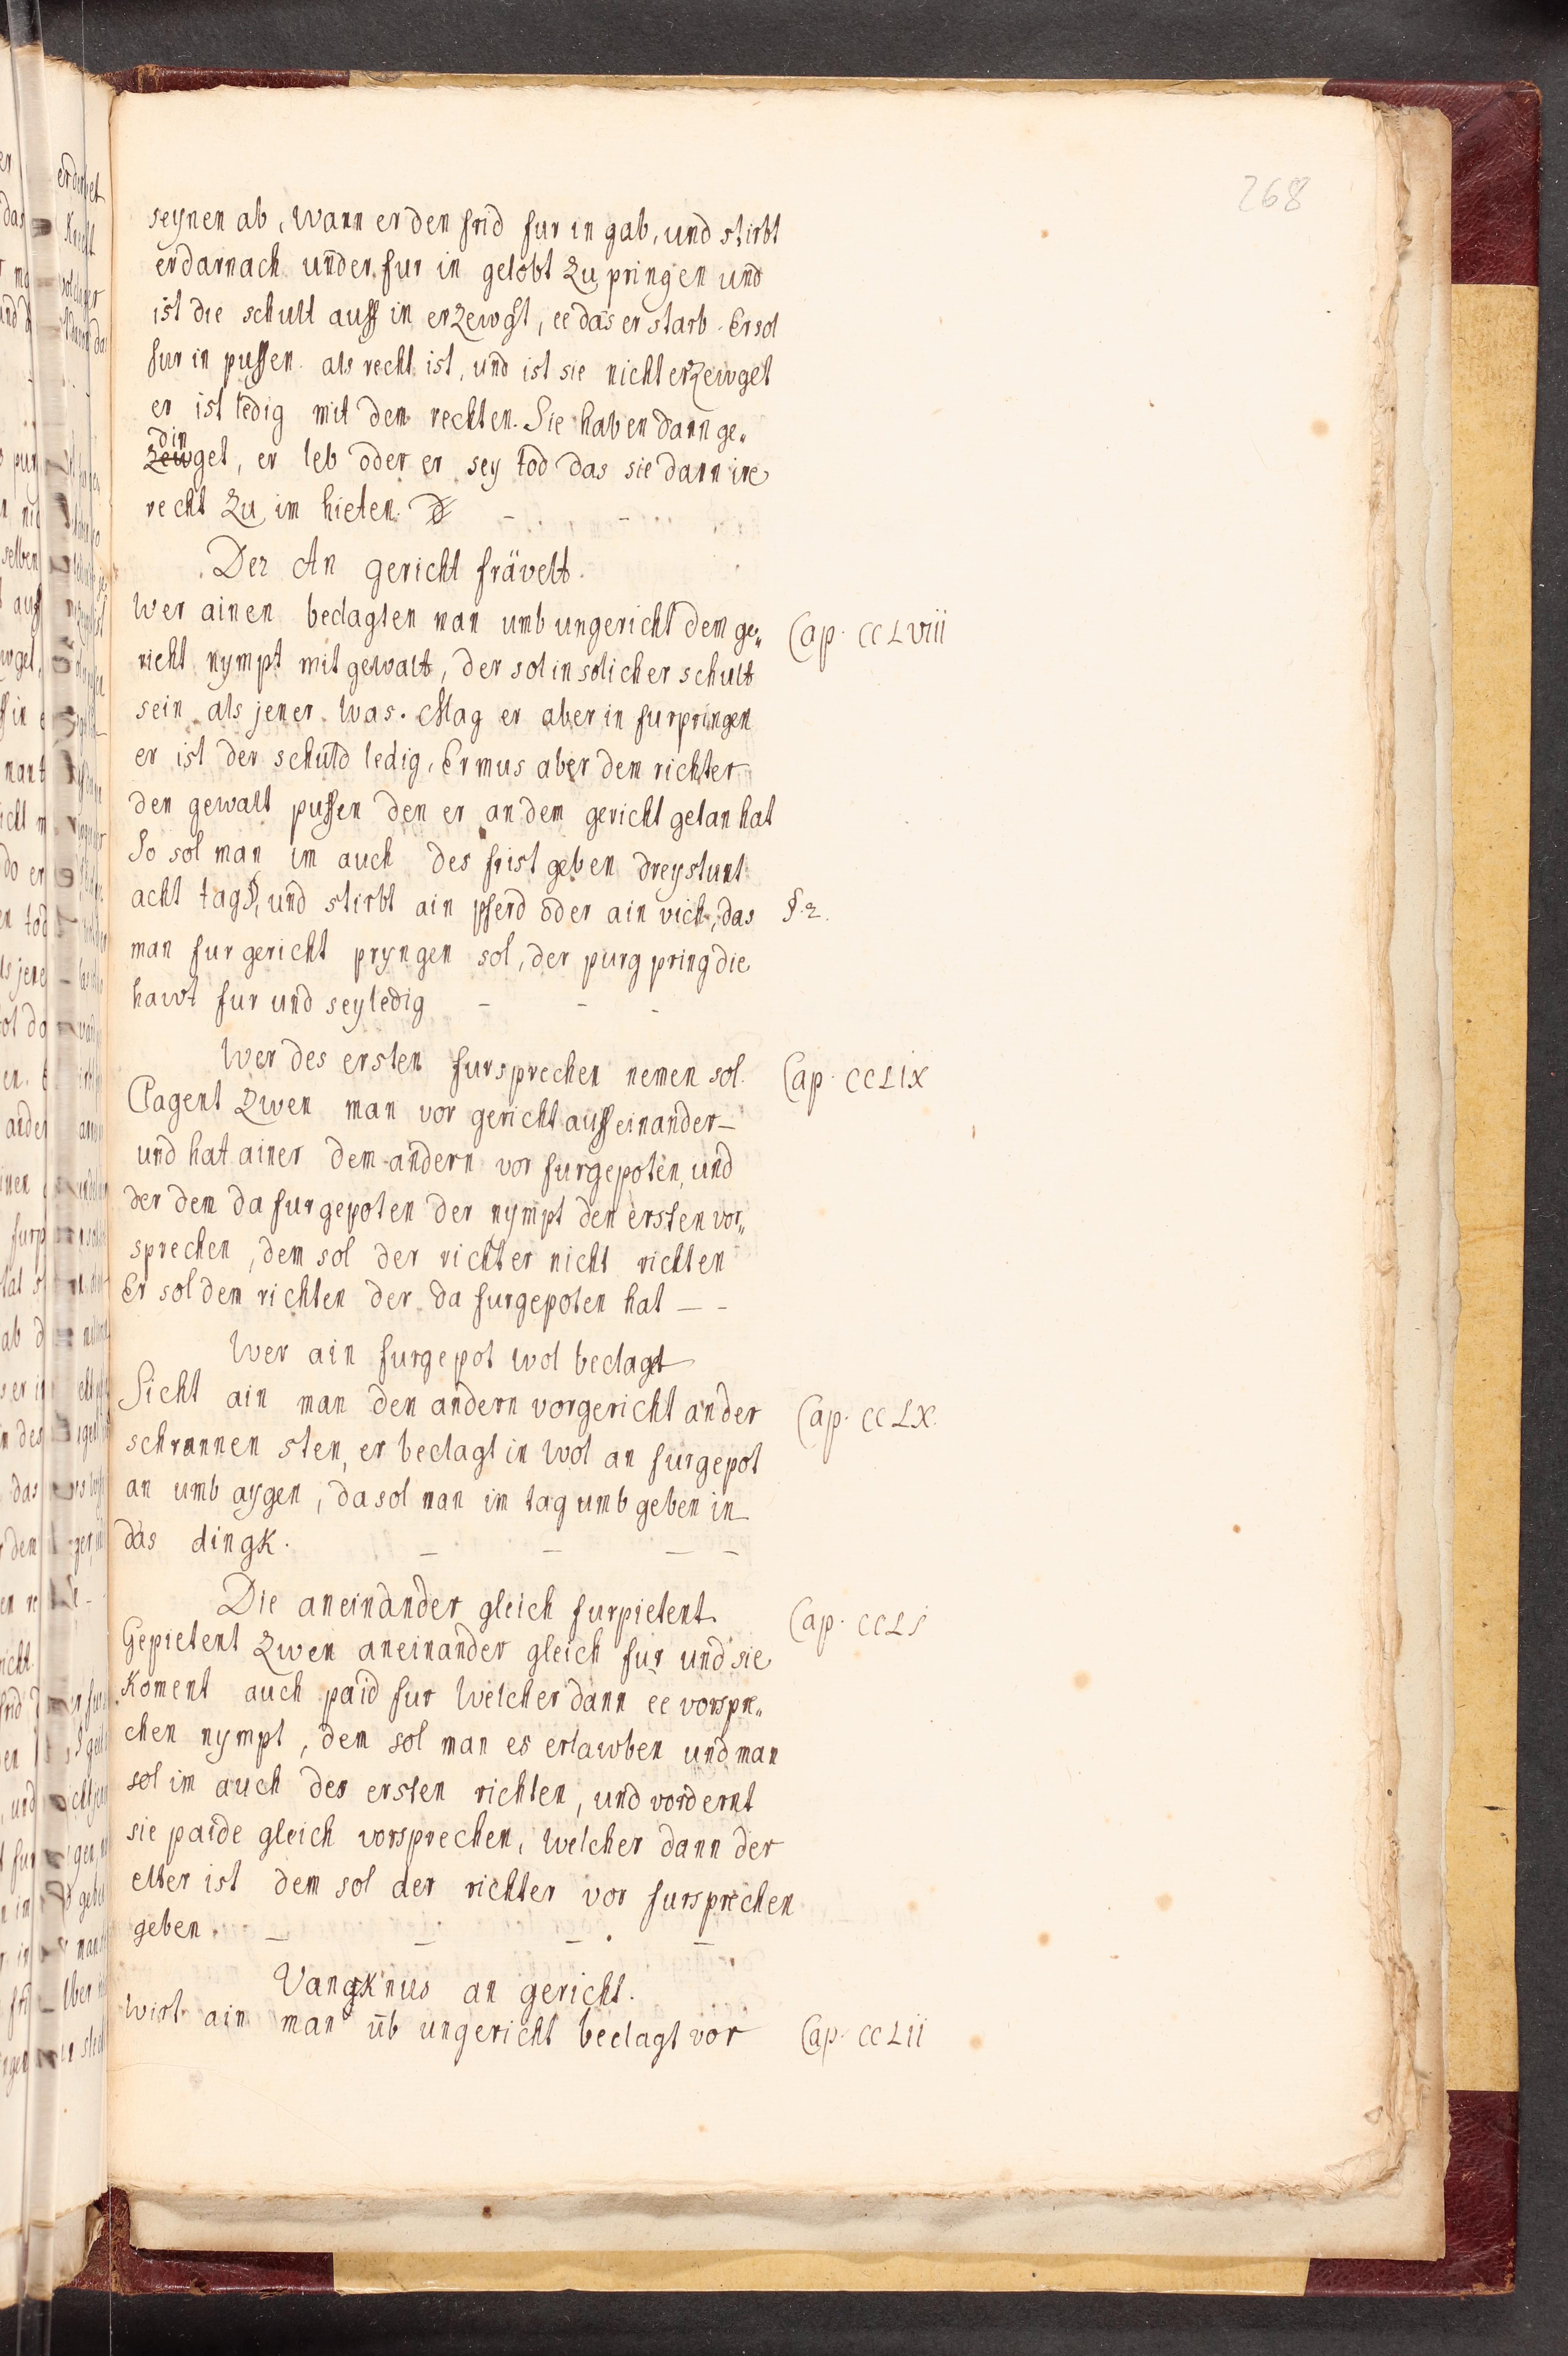 268
seynen ab, wann er den frid fur in gab, und stirbt
er darnach under fur in gelobt zu pringen und
ist die schult auff in erzewgt, ee das er starb. Er sol
fur in pussen als recht ist, und ist sie nicht erzewget
er ist ledig mit dem rechten. Sie haben dann ge„
din
zewget, er leb oder er sey tod das sie dann ire
recht zu im hieten.
Der An gericht frävelt.
Wer ainen beclagten man umb ungericht dem ge„ Cap. CCLVIII
richt nympt mit gewalt, der sol in solicher schult
sein als jener was. Mag er aber in furpringen
er ist der schuld ledig, Er mus aber dem richter
den gewalt pussen den er an dem gericht getan hat
So sol man im auch des frist geben dreystunt
acht tag, und stirbt ain pferd oder ain vich, das §. 2.
man fur gericht pryngen sol, der purg pring die
hawt fur und sey ledig - - -
Wer des ersten fursprechen nemen sol. Cap. CCLIX
Clagent zwen man vor gericht auff einander
und hat ainer dem andern vor furgepoten, und
der dem da furgepoten der nympt den ersten vor„
sprechen, dem sol der richter nicht richten
Er sol dem richten der da furgepoten hat - -
Wer ain furgepot wol beclagt
Sicht ain man den andern vor gericht an der Cap. CCLX.
schrannen sten, er beclagt in wol an furgepot
an umb aygen, da sol man im tag umb geben in
das dingk. - - - -
Die aneinander gleich furpietent. Cap. CCLI
Gepietent zwen aneinander gleich fur und sie
koment auch paid fur welcher dann ee vorspre„
chen nympt, dem sol man es erlawben und man
sol im auch des ersten richten, und vordernt
sie paide gleich vorsprechen, welcher dann der
elter ist dem sol der richter vor fursprechen
geben. - - - -
Vangknus an gericht.
Wirt ain man ūb ungericht beclagt vor Cap. CCLII